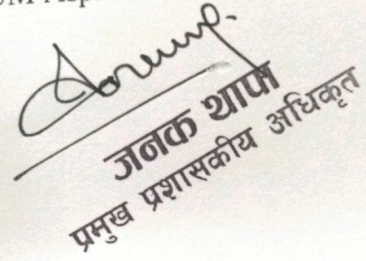 जनक थापा
प्रमुख प्रशासकीय अधिकृत